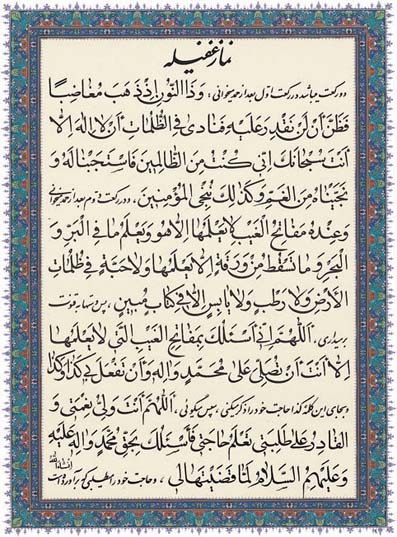 نماز غفیله
دو رکعت میباشد و در رکعت اول بعد از حمد میخوانی: وَذَا النُّونِ اِذْ ذَهَبَ مُغَاضِبًا
فَظَنَّ اَنْ لَنْ نَقْدِرَ عَلَیْهِ فَنَادٰی فِی الظُّلُمَاتِ اَنْ لَا اِلٰهَ اِلَّا
اَنْتَ سُبْحَانَكَ اِنِّی كُنْتُ مِنَ الظَّالِمِینَ فَاسْتَجَبْنَا لَهُ وَ
نَجَّیْنَاهُ مِنَ الْغَمِّ وَكَذٰلِكَ نُنْجِی الْمُؤْمِنِینَ، و در رکعت دوم بعد از حمد میخوانی
وَعِنْدَهُ مَفَاتِحُ الْغَیْبِ لَا یَعْلَمُهَا اِلَّا هُوَ وَیَعْلَمُ مَا فِی الْبَرِّ وَ
الْبَحْرِ وَمَا تَسْقُطُ مِنْ وَرَقَةٍ اِلَّا یَعْلَمُهَا وَلَا حَبَّةٍ فِی ظُلُمَاتِ
الْاَرْضِ وَلَا رَطْبٍ وَلَا یَابِسٍ اِلَّا فِی كِتَابٍ مُبِینٍ، پس دستها به قنوت
برمیداری، اَللّٰهُمَّ اِنِّی اَسْئَلُكَ بِمَفَاتِحِ الْغَیْبِ الَّتِی لَا یَعْلَمُهَا
اِلَّا اَنْتَ اَنْ تُصَلِّیَ عَلٰی مُحَمَّدٍ وَاٰلِهِ وَاَنْ تَفْعَلَ بِی كَذَا وَكَذَا
و بجای این کلمه کذا حاجت خود را ذکر میکنی، پس میگوئی، اَللّٰهُمَّ اَنْتَ وَلِیُّ نِعْمَتِی وَ
الْقَادِرُ عَلٰی طَلِبَتِی تَعْلَمُ حَاجَتِی فَاَسْئَلُكَ بِحَقِّ مُحَمَّدٍ وَاٰلِهِ عَلَیْهِ
وَعَلَیْهِمُ السَّلَامُ لَمَّا قَضَیْتَهَا لِی، و حاجت خود را میطلبی که برآورده است انشاءالله